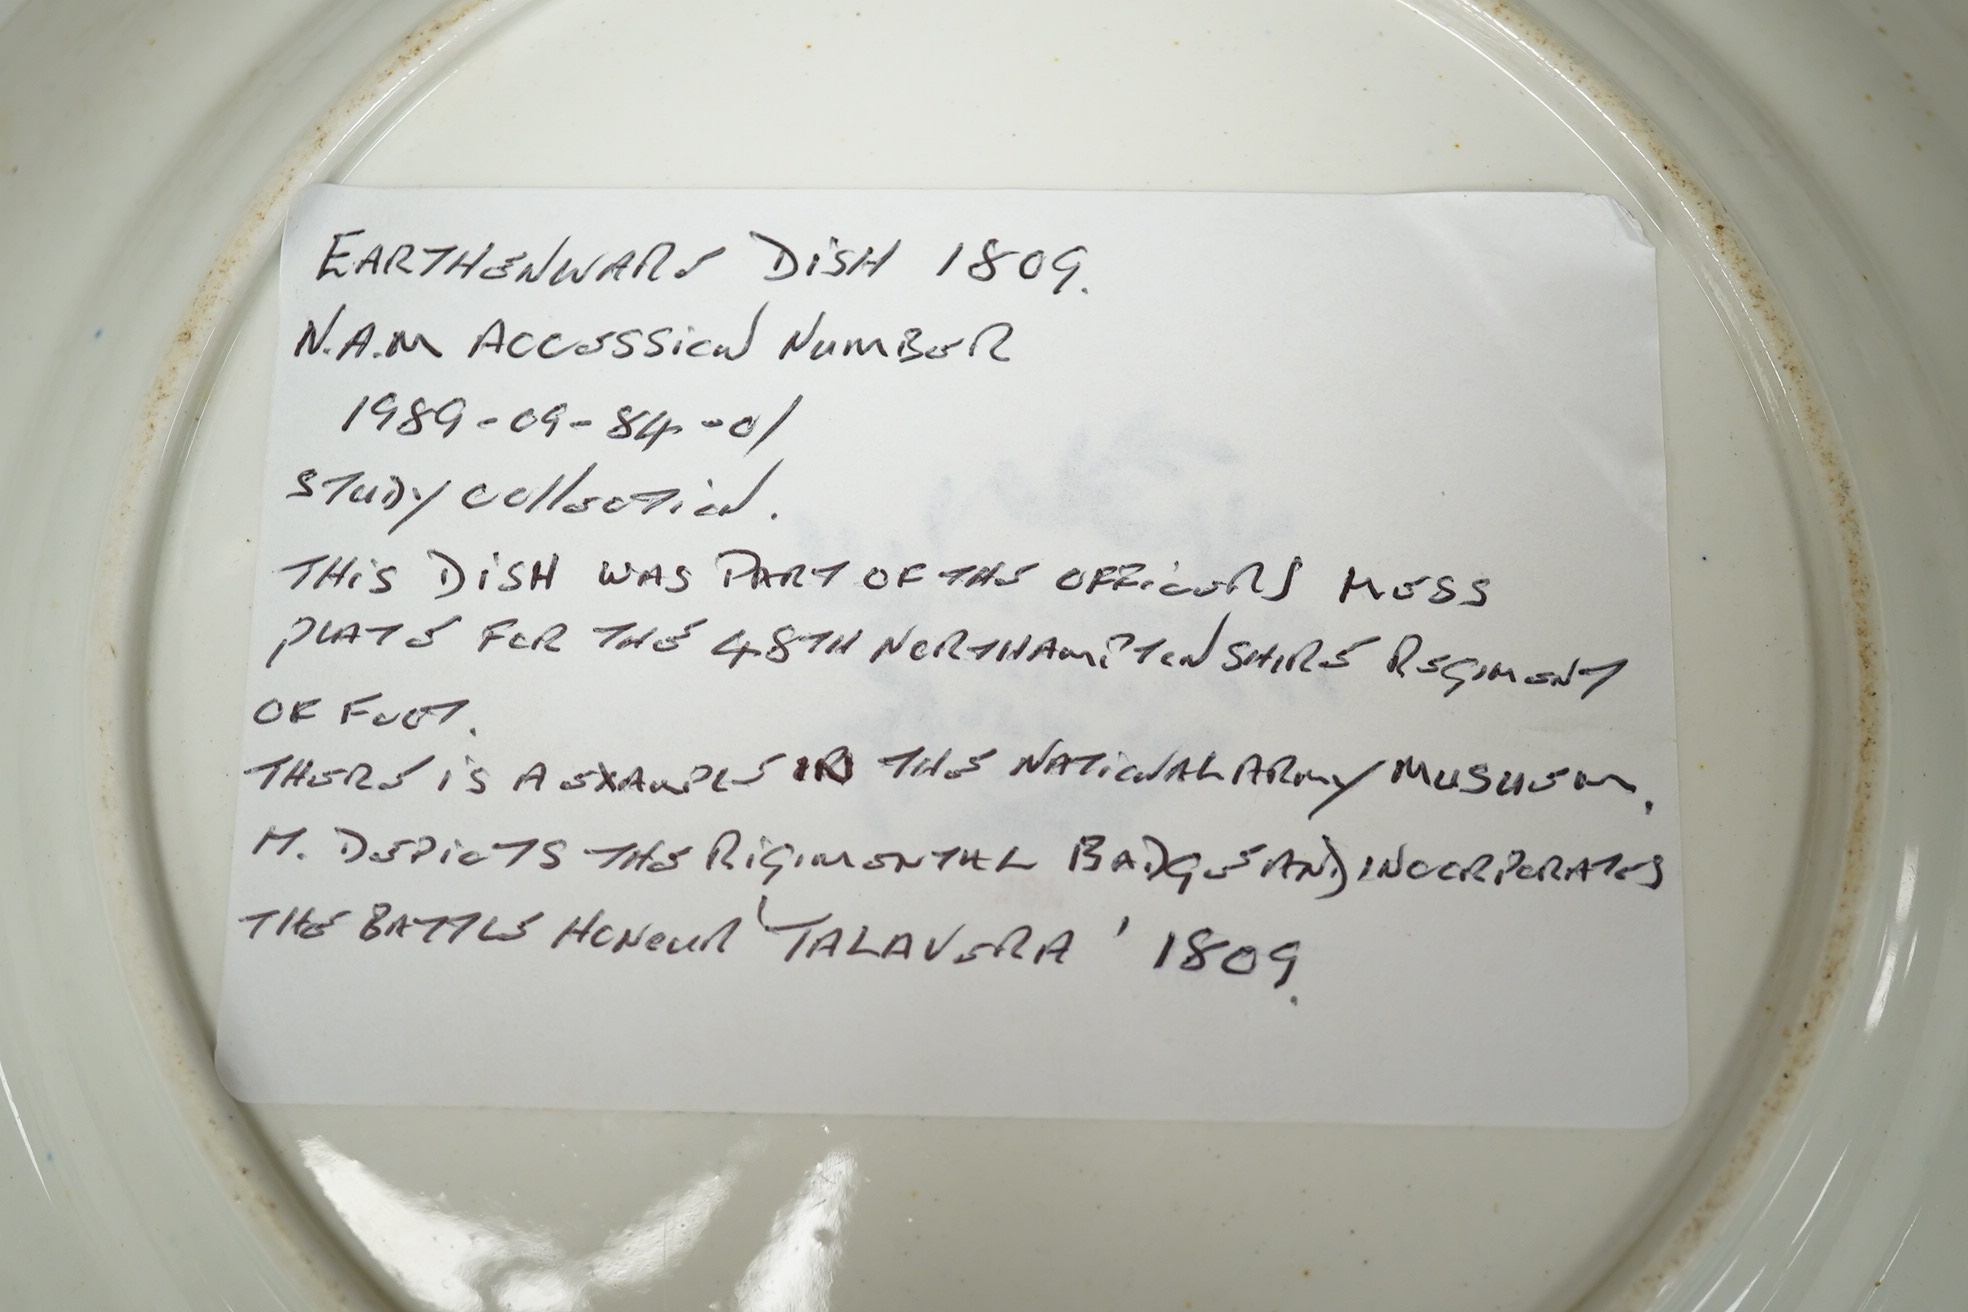 EARTHENWARE DISH 1809.
N.A.M ACCESSION NUMBER
1989-09-84-01
STUDY COLLECTION.
THIS DISH WAS PART OF THE OFFICERS MESS
PLATE FOR THE 48TH NORTHAMPTONSHIRE REGIMENT
OF FOOT.
THERE IS A EXAMPLE IN THE NATIONAL ARMY MUSUEM.
DEPICTS THE RIGIMENTAL BADGE AND INCORPORATES
THE BATTLE HONOUR 'TALAVERA' 1809.